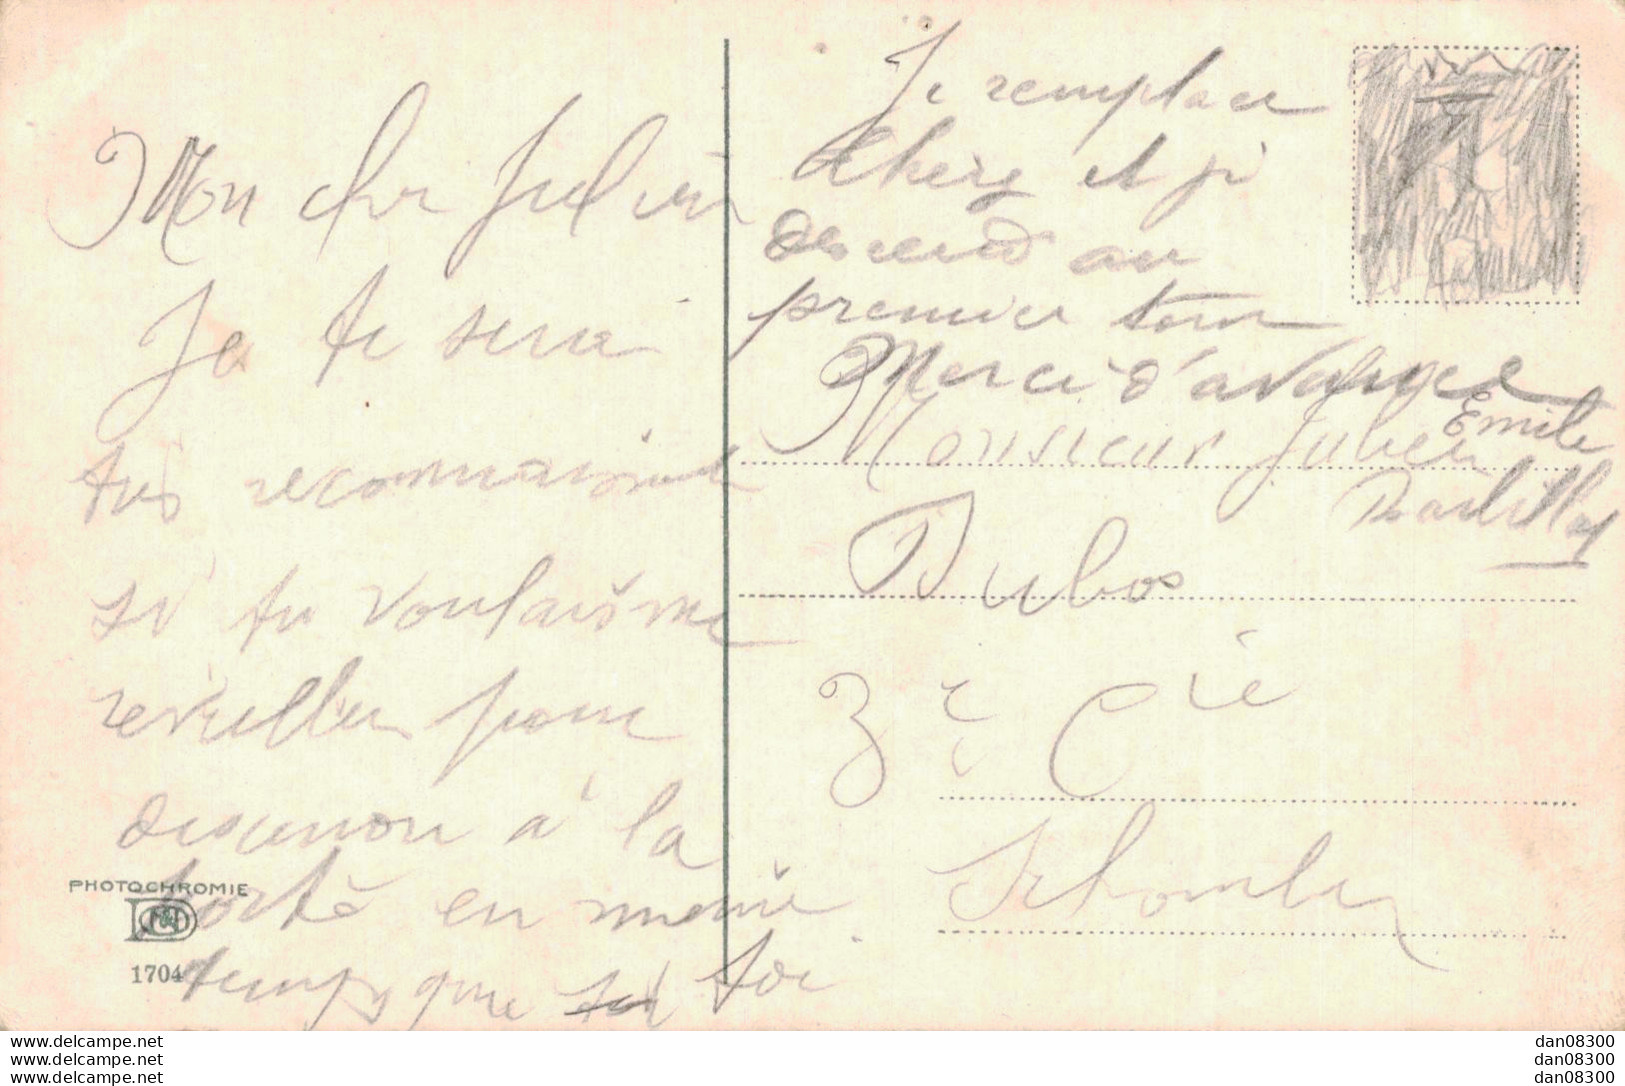 Mon cher Julien
Je te serai
très reconnaissant
si tu voulais me
réveiller pour
descendre à la
porte en même
temps que toi
Je remplace
et je
descend au
premier tour
Merci d'avance
Emile
Monsieur Julien
Dubos
3e Cie
PHOTOCHROMIE
1704
www.delcampe.net
www.delcampe.net
www.delcampe.net
dan08300
dan08300
dan08300